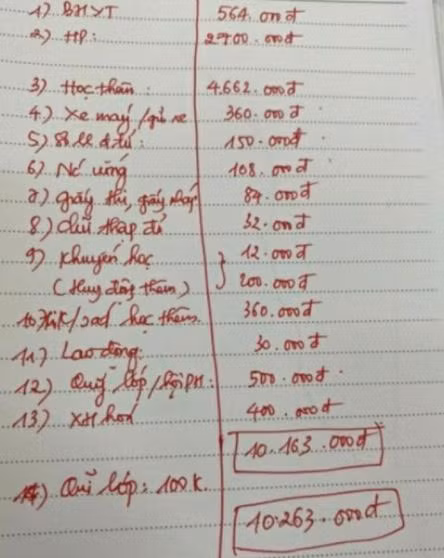 1) BHYT 564.000đ
2) HP: 2700.000đ
3) Học thêm: 4.662.000đ
4.) Xe máy/gửi xe 360.000đ
5) Sổ LL đ tử: 150.000đ
6) Nc uống 108.000đ
7) giấy thi, giấy nháp 84.000đ
8.) chữ thập đỏ 32.000đ
9) Khuyến học 12.000đ
(Huy động thêm) 200.000đ
10. học thêm. 360.000đ
11.) Lao động: 30.000đ
12) Quỹ lớp/hội PH: 500.000đ
13) XH hoá 400.000đ
10.163.000đ
14) Quĩ lớp: 100K.
10.263.000đ